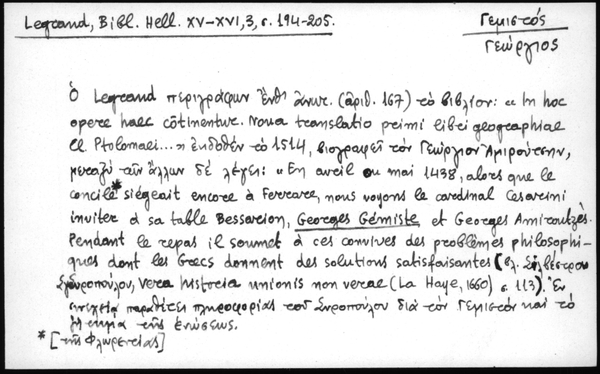 Legrand, Bibl. Hell. XV-XVI, 3, σ. 194-205.
Γεμιστός
Γεώργιος
Ὁ Legrand περιγράφων ἔνθ' ἄνωτ. (ἀριθ. 167) τὸ βιβλίον: « In hoc
opere haec cōtinentur. Noua translatio primi libri geographiae
Cl. Ptolomaei... » ἐκδοθὲν τὸ 1514, βιογραφεῖ τὸν Γεώργιον Ἀμιρούτσην,
μεταξὺ τῶν ἄλλων δὲ λέγει: « En avril ou mai 1438, alors que le
concile* siégeait encore à Ferrare, nous voyons le cardinal Cesarini
inviter à sa table Bessarion, Georges Gémiste et Georges Amiroutzès.
Pendant le repas il soumet à ces convives des problèmes philosophi-
ques dont les Grecs donnent des solutions satisfaisantes (βλ. Σιλβέστρου
Συροπούλου, Vera historia unionis non verae (La Haye, 1660) σ. 113). Ἐν
συνεχείᾳ παραθέτει πληροφορίας τοῦ Συροπούλου διὰ τὸν Γεμιστὸν καὶ τὸ
ζήτημα τῆς ἑνώσεως.
* [τῆς Φλωρεντίας]